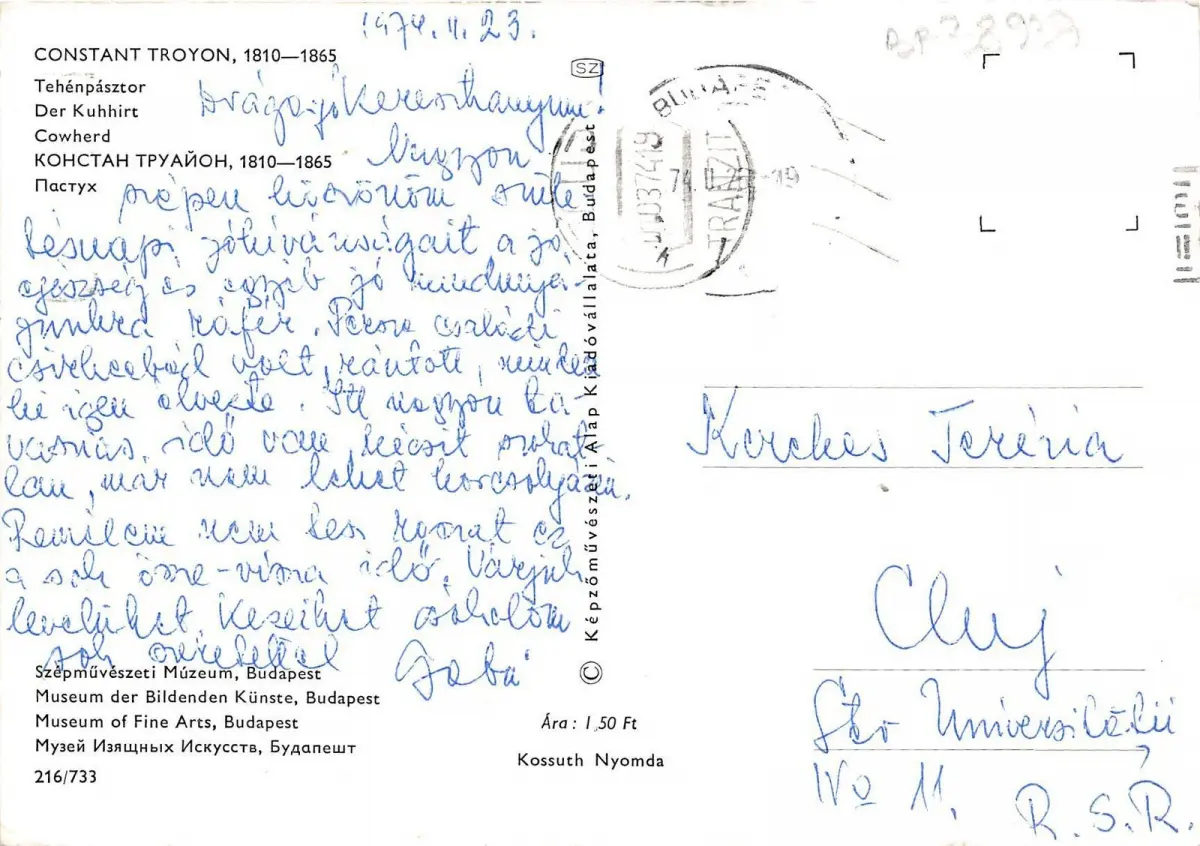 1974. II. 23.
CONSTANT TROYON, 1810—1865
Tehénpásztor
Der Kuhhirt
Cowherd
КОНСТАН ТРУАЙОН, 1810—1865
Пастух
Drága jó Keresztanyum!
Nagyon
szépen köszönöm szüle
tésnapi jókívánságait, a jó
egészség és egyéb jó mindnyá-
junkra ráfér. Persze családi
csirkeebéd volt, rántott, minden
ki igen élvezte. Itt nagyon ta
vaszias idő van, hócsit szokat
lan, már nem lehet korcsolyázni.
Remélem nem lesz rossz ez
a sok össze-vissza idő. Várjuk
levelüket. Kezeiket csókolom
sok szeretettel Gabi
Szépművészeti Múzeum, Budapest
Museum der Bildenden Künste, Budapest
Museum of Fine Arts, Budapest
Музей Изящных Искусств, Будапешт
216/733
SZ
© Képzőművészeti Alap Kiadóvállalata, Budapest
Ára: 1,50 Ft
Kossuth Nyomda
BUDAPE
TRANZIT
Kerekes Terézia
Cluj
Str Universității
No 11.
R.S.R.